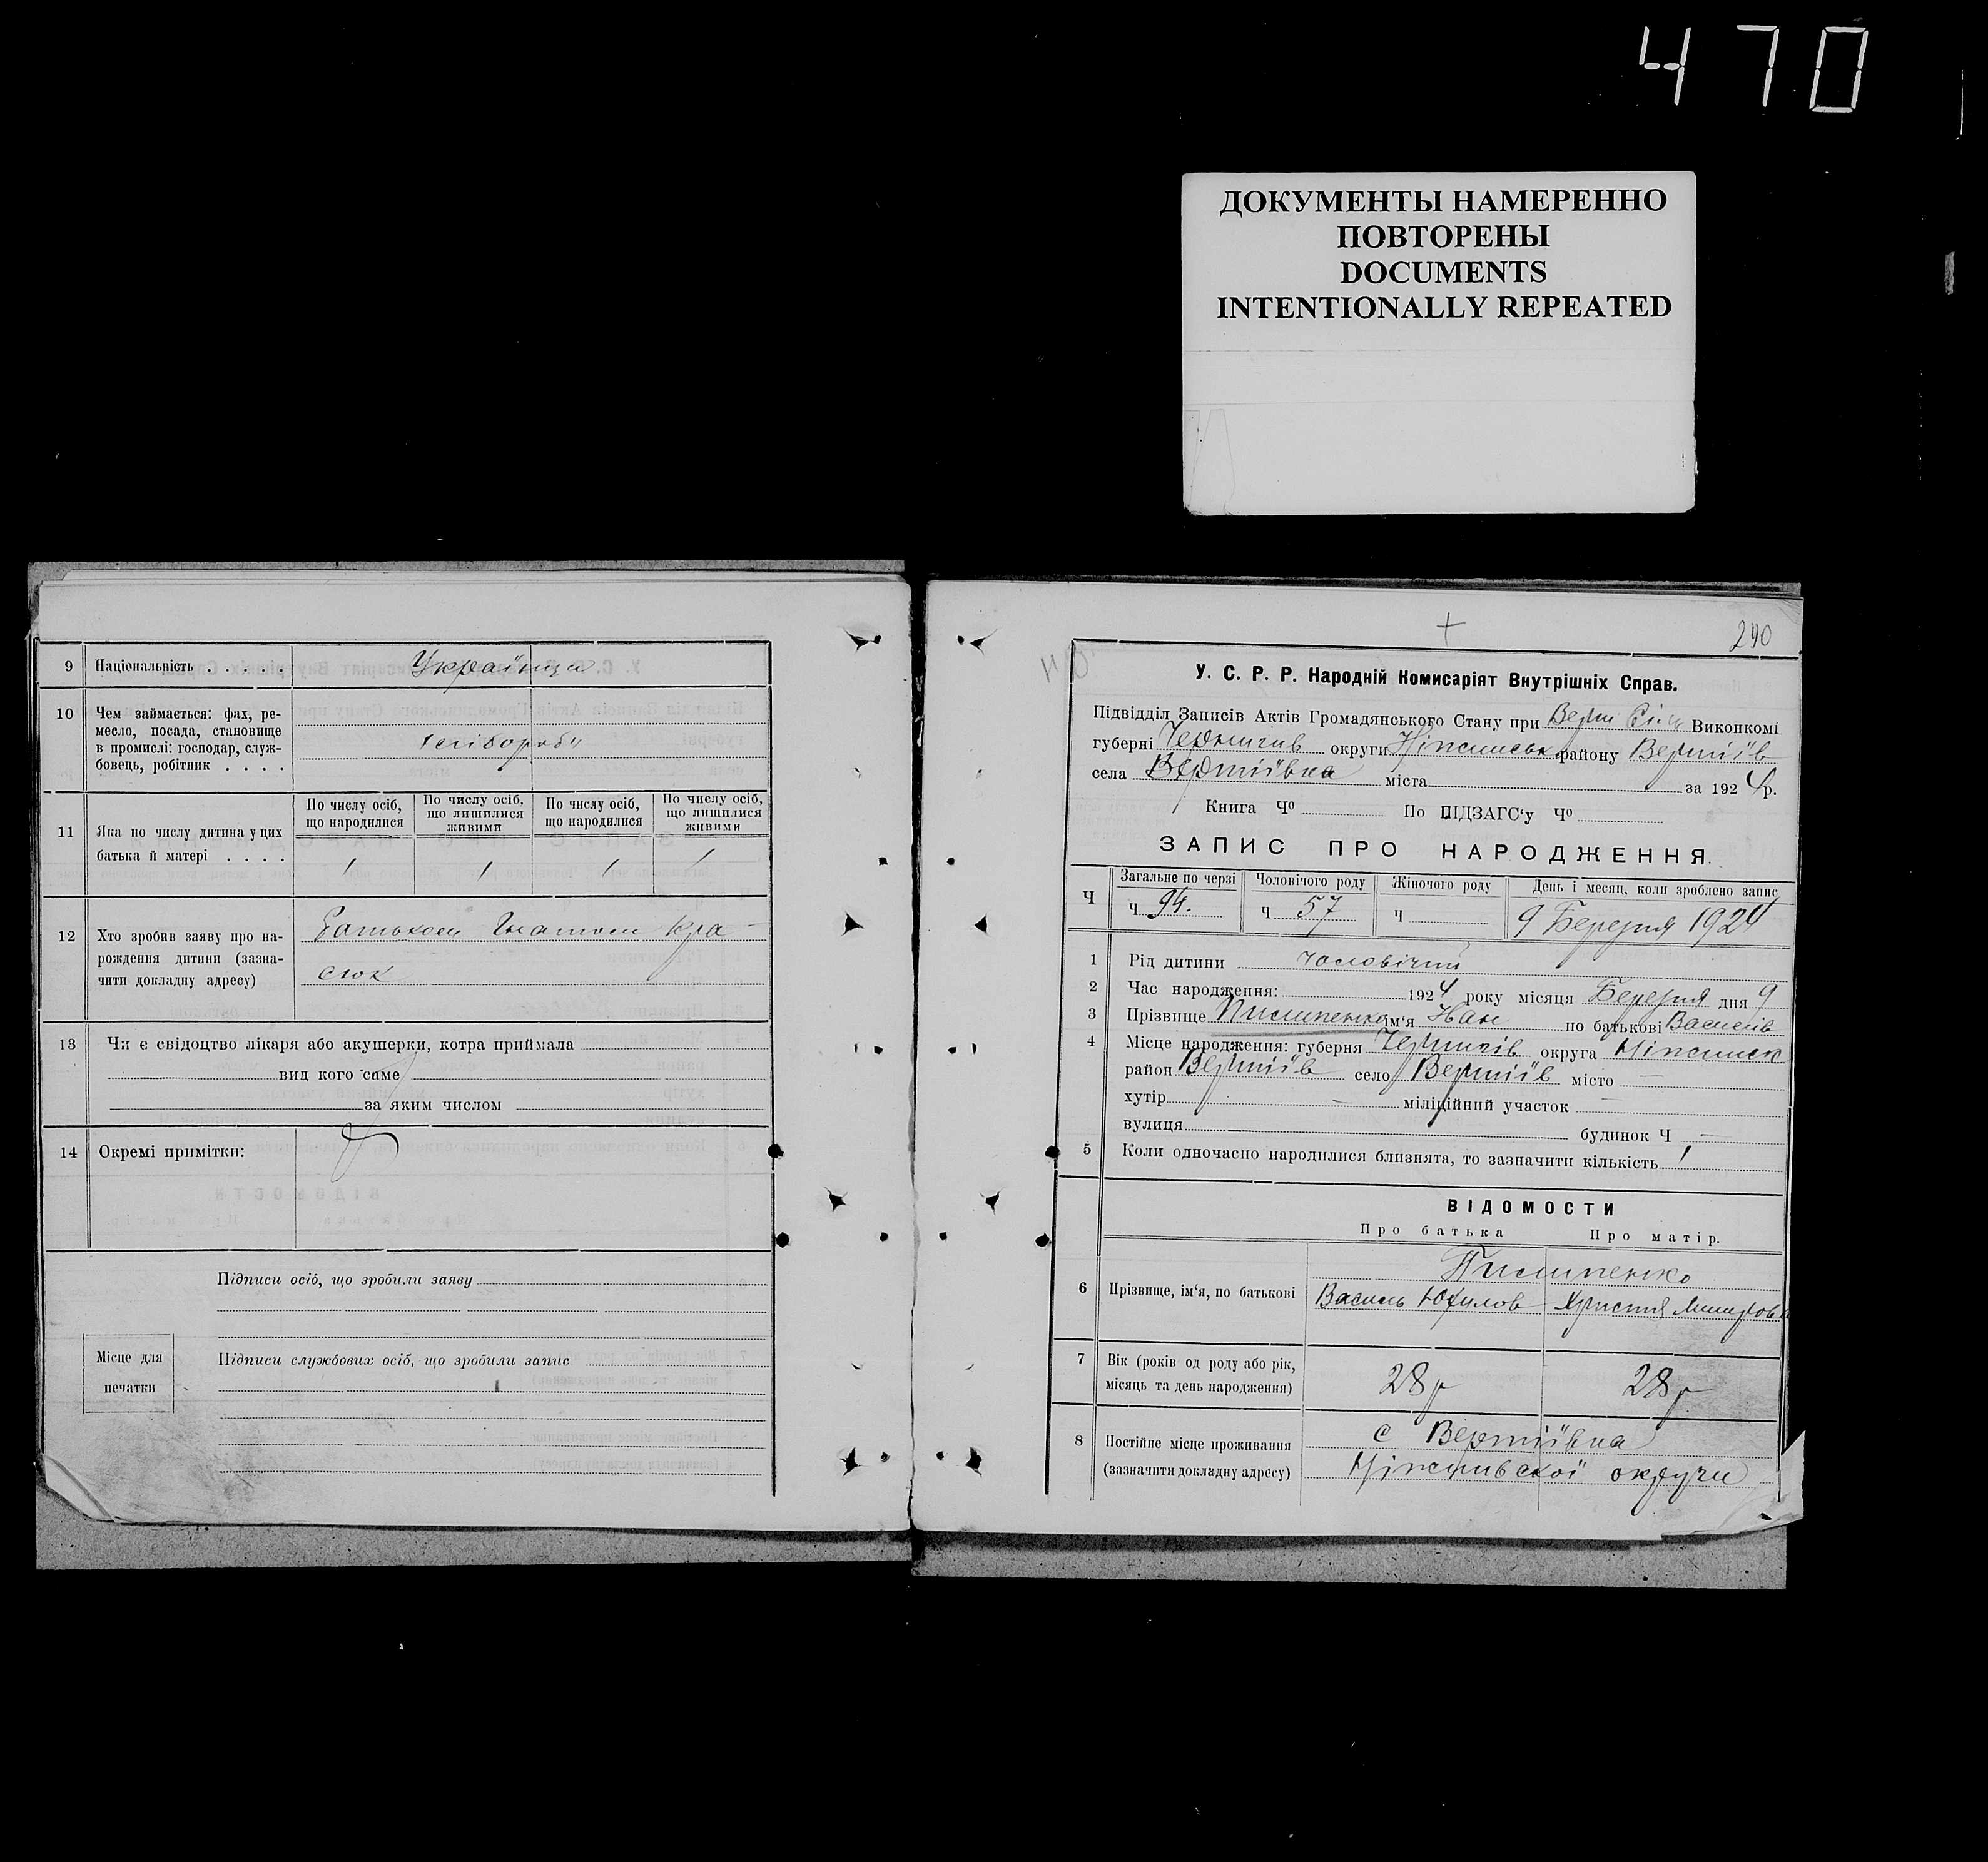 470
ДОКУМЕНТЫ НАМЕРЕННО
ПОВТОРЕНЫ
DOCUMENTS
INTENTIONALLY REPEATED
9 Національність . . . . . Українца
10 Чем займається: фах, ре-
месло, посада, становище
в промислі: господар, служ-
бовець, робітник . . . .
хлібороби
11 Яка по числу дитина у цих
батька й матері . . . .
По числу осіб, що народилися
По числу осіб, що лишилися живими
По числу осіб, що народилися
По числу осіб, що лишилися живими
1 1 1 1
12 Хто зробив заяву про на-
рождення дитини (зазна-
чити докладну адресу)
Батьком Гнатом Кра-
сюк
13 Чи є свідоцтво лікаря або акушерки, котра приймала
вид кого саме
за яким числом
14 Окремі примітки:
Підписи осіб, що зробили заяву
Місце для
печатки
Підписи службових осіб, що зробили запис
290
У. С. Р. Р. Народній Комисаріят Внутрішніх Справ.
Підвідділ Записів Актів Громадянського Стану при Верти Сіль Виконкомі
губерні Чернигив округи Ніжинськ району Вертіїв
села Вертіївка міста за 1924р.
Книга Чº По ПІДЗАГС'у Чº
ЗАПИС ПРО НАРОДЖЕННЯ.
Ч
Загальне по черзі Чоловічого роду Жіночого роду День і месяц, коли зроблено запис
Ч 94. Ч 57 Ч 9 Березня 1924
1 Рід дитини чоловічий
2 Час народження: 1924 року місяця Березня дня 9
3 Прізвище Пилипенко ім'я Іван по батькові Василів
4 Місце народження: губерня Чернигів округа Ніжинск
район Вертіїв село Вертіїв місто —
хутір — міліційний участок —
вулиця будинок Ч —
5 Коли одночасно народилися близнята, то зазначити кількість 1
ВІДОМОСТИ
Про батька Про матір.
Пилипенко
6 Прізвище, ім'я, по батькові Василь Юхилов Христия
7 Вік (років од роду або рік,
місяць та день народження)
28 р 28 р
8 Постійне місце проживання
(зазначити докладну адресу)
с Вертіївка
Ніжинвскої округи